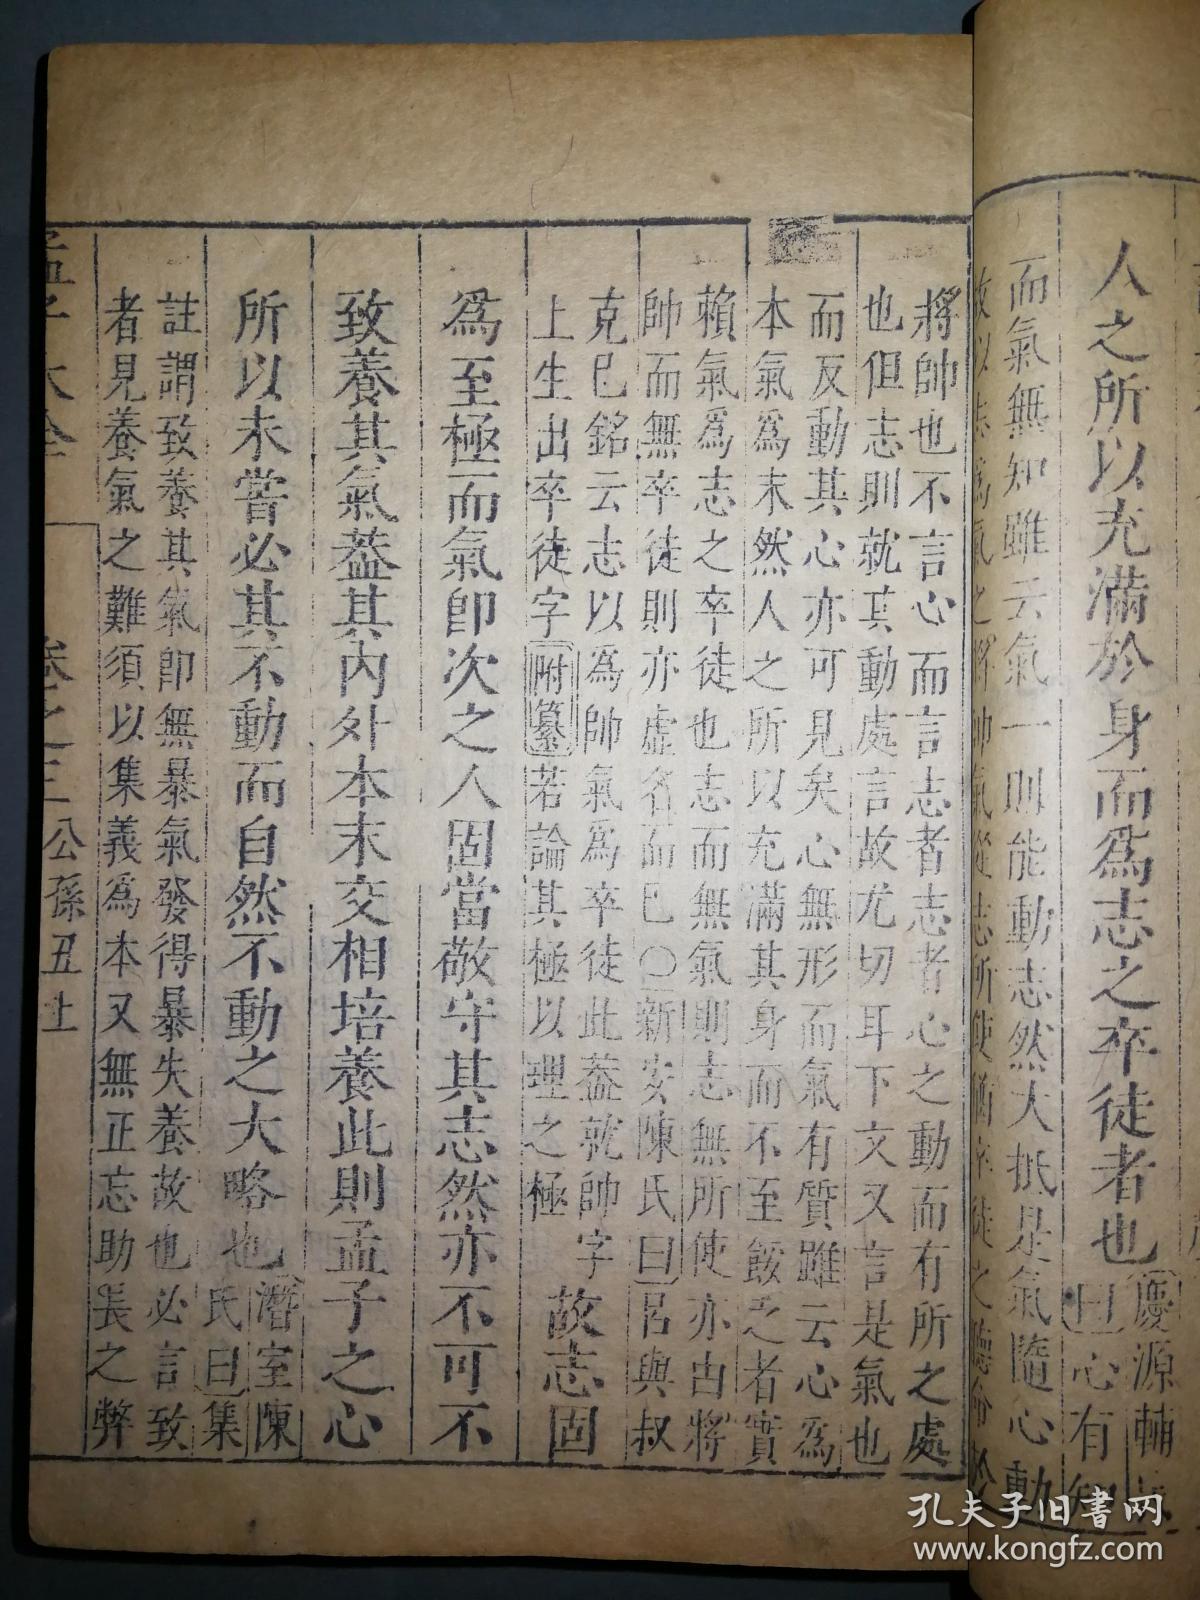 人之所以充滿於身而為志之卒徒者也
慶源輔
曰心有知
而氣無知雖云氣一則能動志然大抵是氣隨心動
將帥也不言心而言志者志者心之動而有所之處
也但志則就其動處言故尤切耳下文又言是氣也
而反動其心亦可見矣心無形而氣有質雖云心為
本氣為末然人之所以充滿其身而不至餒之者實
賴氣為志之卒徒也志而無氣則志無所使亦古將
帥而無卒徒則亦虛名而已○新安陳氏曰呂與叔
克已銘云志以為帥氣為卒徒此葢就帥字
上生出卒徒字附纂若論其極以理之極
故志固
為至極而氣卽次之人固當敬守其志然亦不可不
致養其氣葢其內外本末交相培養此則孟子之心
所以未嘗必其不動而自然不動之大略也
潛室陳
氏曰集
註謂致養其氣卽無暴氣發得暴失養故也必言致
者見養氣之難須以集義為本又無正忘助長之弊
孟子大全 卷之三 公孫丑上
孔夫子旧书网
www.kongfz.com